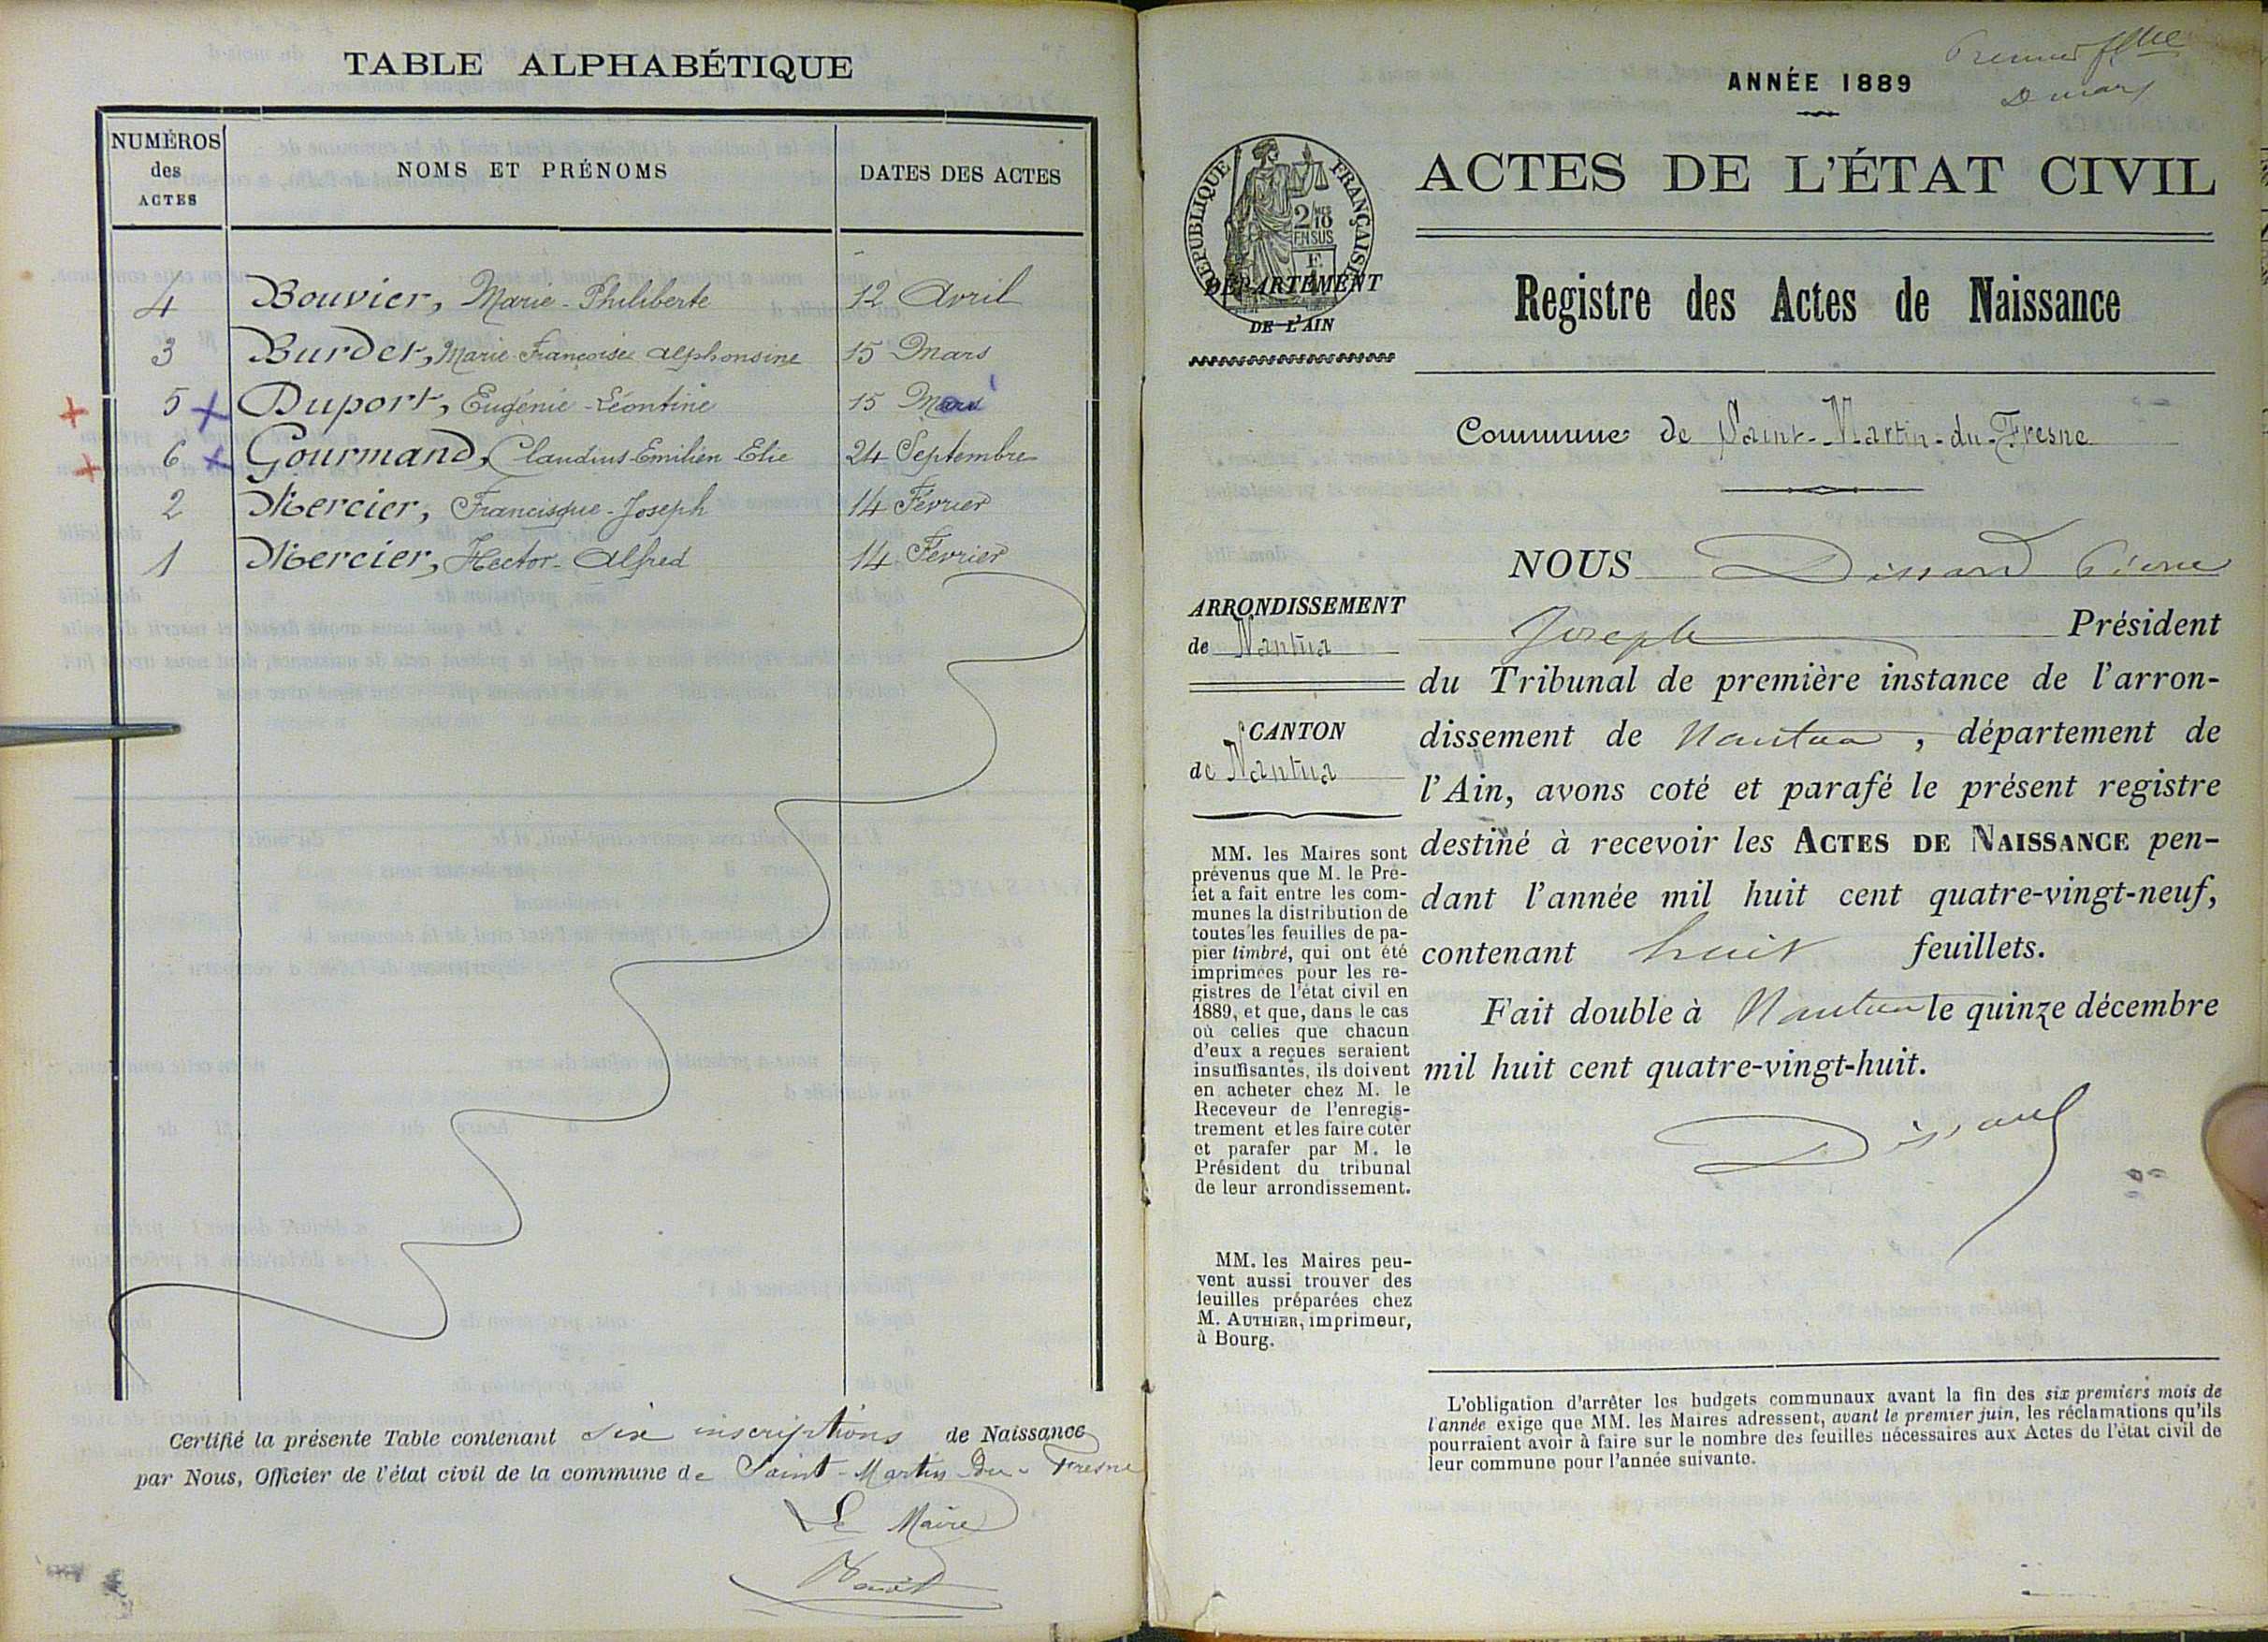 TABLE ALPHABÉTIQUE
NUMÉROS
des
ACTES
NOMS ET PRÉNOMS
DATES DES ACTES
4 Bouvier, Marie-Philiberte 12 Avril
3 Burdet, Marie Françoise Alphonsine 15 Mars
5 Duport, Eugénie-Léontine 15
6 Gourmand, Claudius Emilien Elie 24 Septembre
2 Mercier, Francisque-Joseph 14 Février
1 Mercier, Hector-Alfred 14 Février
Certifié la présente Table contenant six inscriptions de Naissance
par Nous, Officier de l'état civil de la commune de Saint-Martin-du-Fresne
Le Maire
ANNÉE 1889
ACTES DE L'ÉTAT CIVIL
RÉPUBLIQUE FRANÇAISE
2/10
EN SUS
DÉPARTEMENT
DE L'AIN
Registre des Actes de Naissance
Commune de Saint-Martin-du-Fresne
ARRONDISSEMENT
de Nantua
CANTON
de Nantua
MM. les Maires sont
prévenus que M. le Pré-
fet a fait entre les com-
munes la distribution de
toutes les feuilles de pa-
pier timbré, qui ont été
imprimées pour les re-
gistres de l'état civil en
1889, et que, dans le cas
où celles que chacun
d'eux a reçues seraient
insuffisantes, ils doivent
en acheter chez M. le
Receveur de l'enregis-
trement et les faire coter
et parafer par M. le
Président du tribunal
de leur arrondissement.
MM. les Maires peu-
vent aussi trouver des
feuilles préparées chez
M. AUTHIER, imprimeur,
à Bourg.
NOUS Dissard Pierre
Joseph Président
du Tribunal de première instance de l'arron-
dissement de Nantua, département de
l'Ain, avons coté et parafé le présent registre
destiné à recevoir les ACTES DE NAISSANCE pen-
dant l'année mil huit cent quatre-vingt-neuf,
contenant huit feuillets.
Fait double à Nantua le quinze décembre
mil huit cent quatre-vingt-huit.
Dissard
L'obligation d'arrêter les budgets communaux avant la fin des six premiers mois de
l'année exige que MM. les Maires adressent, avant le premier juin, les réclamations qu'ils
pourraient avoir à faire sur le nombre des feuilles nécessaires aux Actes de l'état civil de
leur commune pour l'année suivante.